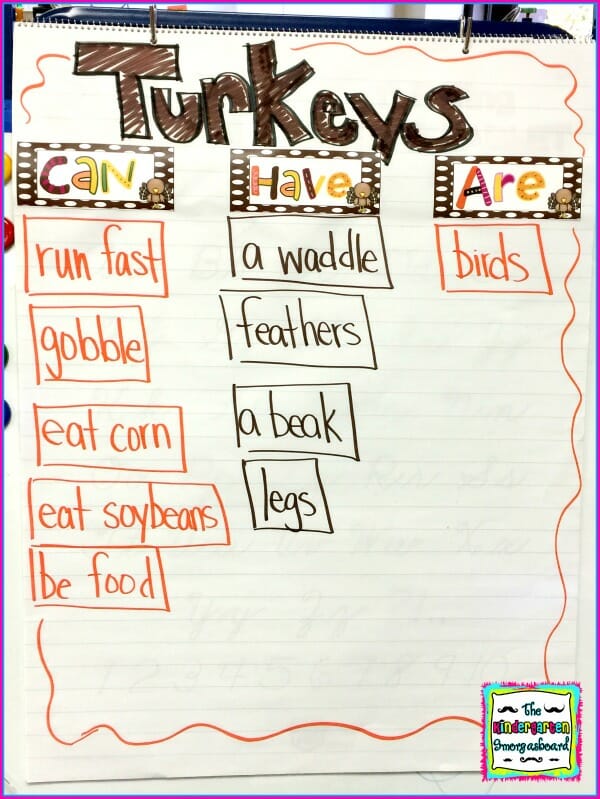 Turkeys
Can
run fast
gobble
eat corn
eat soybeans
be food
Have
a waddle
feathers
a beak
legs
Are
birds
The
Kindergarten
Smorgasboard